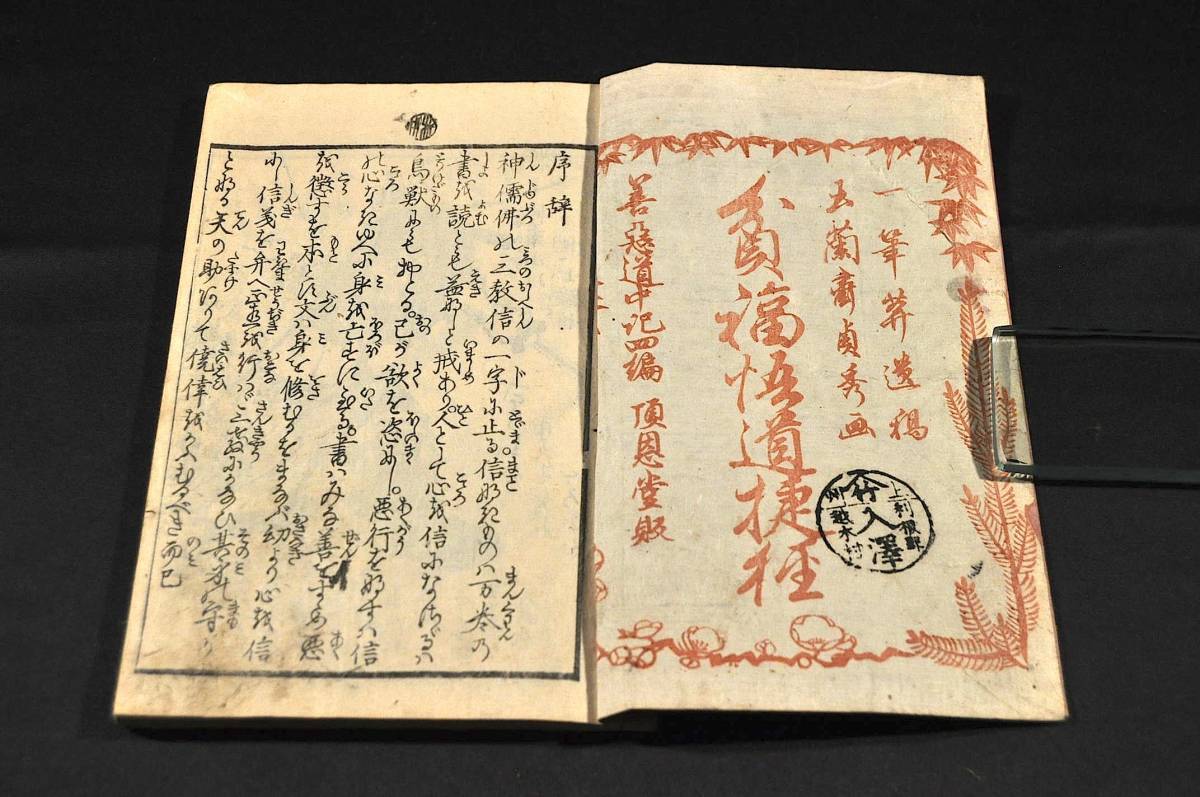 一筆葊遺稿
玉蘭齋貞秀画
貧福悟道捷径
善惡道中記四編 頂恩堂販
上利根郡
竹入澤
州越本村
序辞
神儒佛の三教信の一字に止る。信なきものハ万巻の
書を読とも益なしと戒あり。人として心を信になさゞるハ
鳥獣にも劣る。己が欲を恣にし。悪行をなすハ信
の心なきゆへに身を亡すに至る。書ハみな善をすゝめ悪
を懲すを本とし文ハ身を修むるをまなべバ幼より心を信
に信義を弁へ行ハゞ其守り
となる天の助ありて僥倖をかふむるべき而已